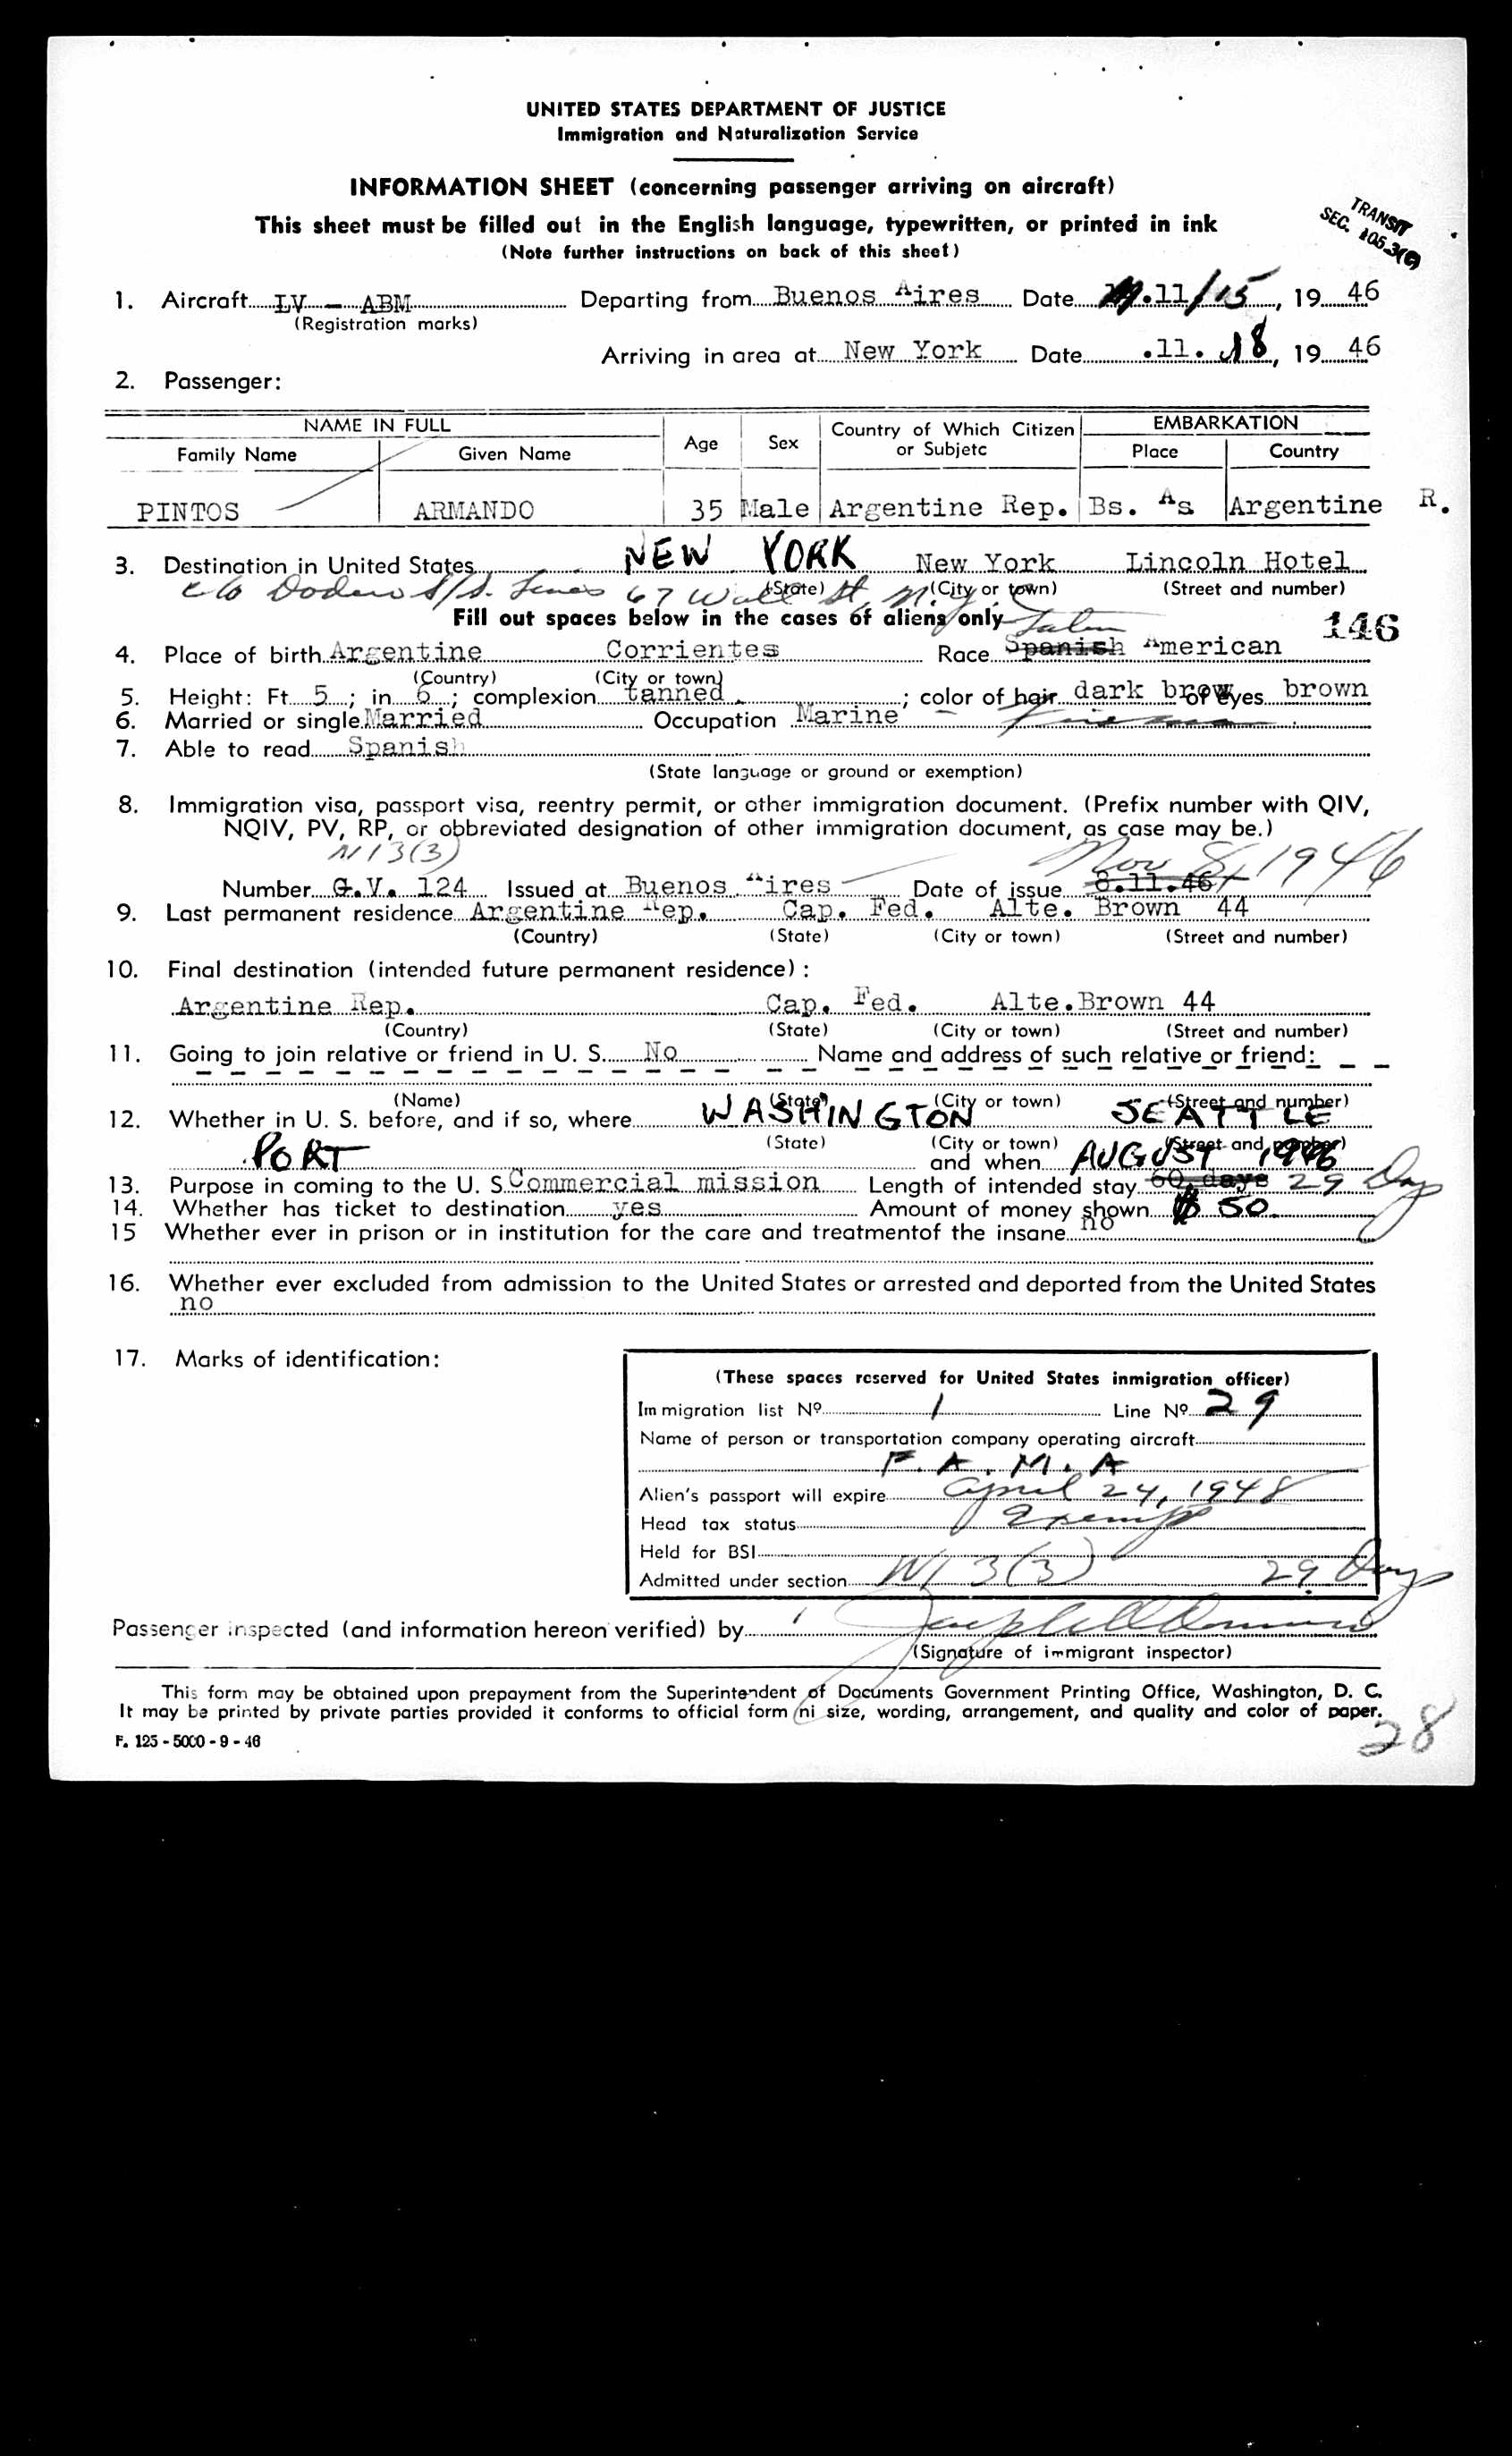 UNITED STATES DEPARTMENT OF JUSTICE
Immigration and Naturalization Service
INFORMATION SHEET (concerning passenger arriving on aircraft)
This sheet must be filled out in the English language, typewritten, or printed in ink
(Note further instructions on back of this sheet)
TRANSIT
SEC. 105.3(C)
1. Aircraft LV - ABM Departing from Buenos Aires Date 11/15, 19 46
(Registration marks)
Arriving in area at New York Date .11. 18, 19 46
2. Passenger:
NAME IN FULL Age Sex Country of Which Citizen or Subjetc EMBARKATION
Family Name Given Name Place Country
PINTOS ARMANDO 35 Male Argentine Rep. Bs. As Argentine R.
3. Destination in United States NEW YORK New York Lincoln Hotel
(State) (City or town) (Street and number)
c/o Dodero S/S. Lines 67 Wall St, N.Y.C
Fill out spaces below in the cases of aliens only
146
4. Place of birth Argentine Corrientes Race Spanish Latin American
(Country) (City or town)
5. Height: Ft. 5 ; in 6 ; complexion tanned ; color of hair dark brow of eyes brown
6. Married or single Married Occupation Marine - Fireman
7. Able to read Spanish
(State language or ground or exemption)
8. Immigration visa, passport visa, reentry permit, or other immigration document. (Prefix number with QIV,
NQIV, PV, RP, or obbreviated designation of other immigration document, as case may be.)
N 13(3) Nov 8, 1946
Number G.V. 124 Issued at Buenos Aires Date of issue 8.11.46
9. Last permanent residence Argentine Rep. Cap. Fed. Alte. Brown 44
(Country) (State) (City or town) (Street and number)
10. Final destination (intended future permanent residece) :
Argentine Rep. Cap. Fed. Alte.Brown 44
(Country) (State) (City or town) (Street and number)
11. Going to join relative or friend in U. S. No Name and address of such relative or friend:
(Name) (State) (City or town) (Street and number)
12. Whether in U. S. before, and if so, where WASHINGTON SEATTLE
(State) (City or town) (Street and number)
PORT and when AUGUST 1946
13. Purpose in coming to the U. S. Commercial mission Length of intended stay 60 days 29 Days
14. Whether has ticket to destination yes Amount of money shown $ 50.
15 Whether ever in prison or in institution for the care and treatmentof the insane no
16. Whether ever excluded from admission to the United States or arrested and deported from the United States
no
17. Marks of identification:
(These spaces reserved for United States inmigration officer)
Immigration list Nº 1 Line Nº 29
Name of person or transportation company operating aircraft
F. A. M. A
Alien's passport will expire April 24, 1948
Head tax status Exempt
Held for BSI
Admitted under section N 3(3) 29 Days
Passenger inspected (and information hereon verified) by
(Signature of immigrant inspector)
This form may be obtained upon prepayment from the Superintendent of Documents Government Printing Office, Washington, D. C.
It may be printed by private parties provided it conforms to official form ni size, wording, arrangement, and quality and color of paper.
F. 125 - 5000 - 9 - 46
28